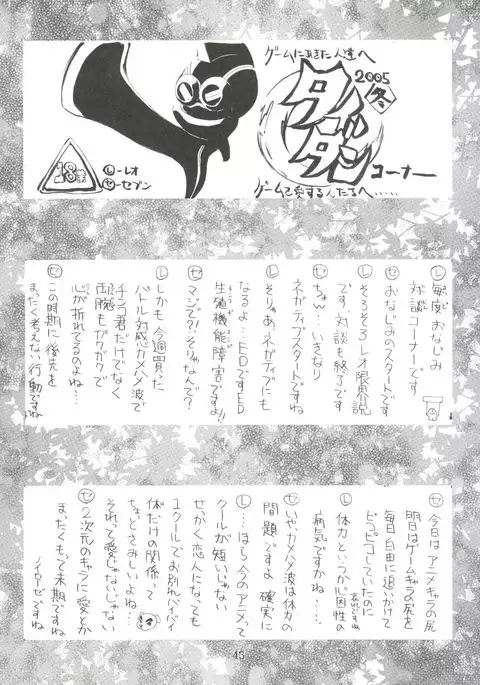 ゲームにあきた人達へ
2005
冬
タイ
ダン
コーナー
ゲームを愛する人たちへ……
18禁
レ－レオ
セ－セブン
レ 毎度おなじみ
対談コーナーです
セ おなじみのスタートです
レ そろそろレオ限界説
です、対談も終了です
セ ちょ…いきなり
ネガティブスタートですね
レ そりゃあネガティブにも
なるよ…EDですED
生殖機能障害ですよ!!
セ マジで?!そりゃなんで?
レ しかも今週買った
バトル対感カメハメ波で
チンコ君だけでなく
両腕もガクガクで
心が折れてるのよね…
セ この時期に後先を
まったく考えない行動ですね
セ 今日はアニメキャラの尻
明日はゲームキャラの尻を
毎日自由に追いかけて
ピコピコしていたのに
レ 体力というか心因性の
病気ですかね…
セ いやカメハメ波は体力の
問題ですよ確実に
レ …ほら今のアニメって
クールが短いじゃない
せっかく恋人になっても
1クールでお別れバイバイ
体だけの関係って
ちょっとさみしいよね…
それって愛じゃないじゃない
セ 2次元のキャラに愛とか
まったくもって末期ですね
ノイローゼですね
43